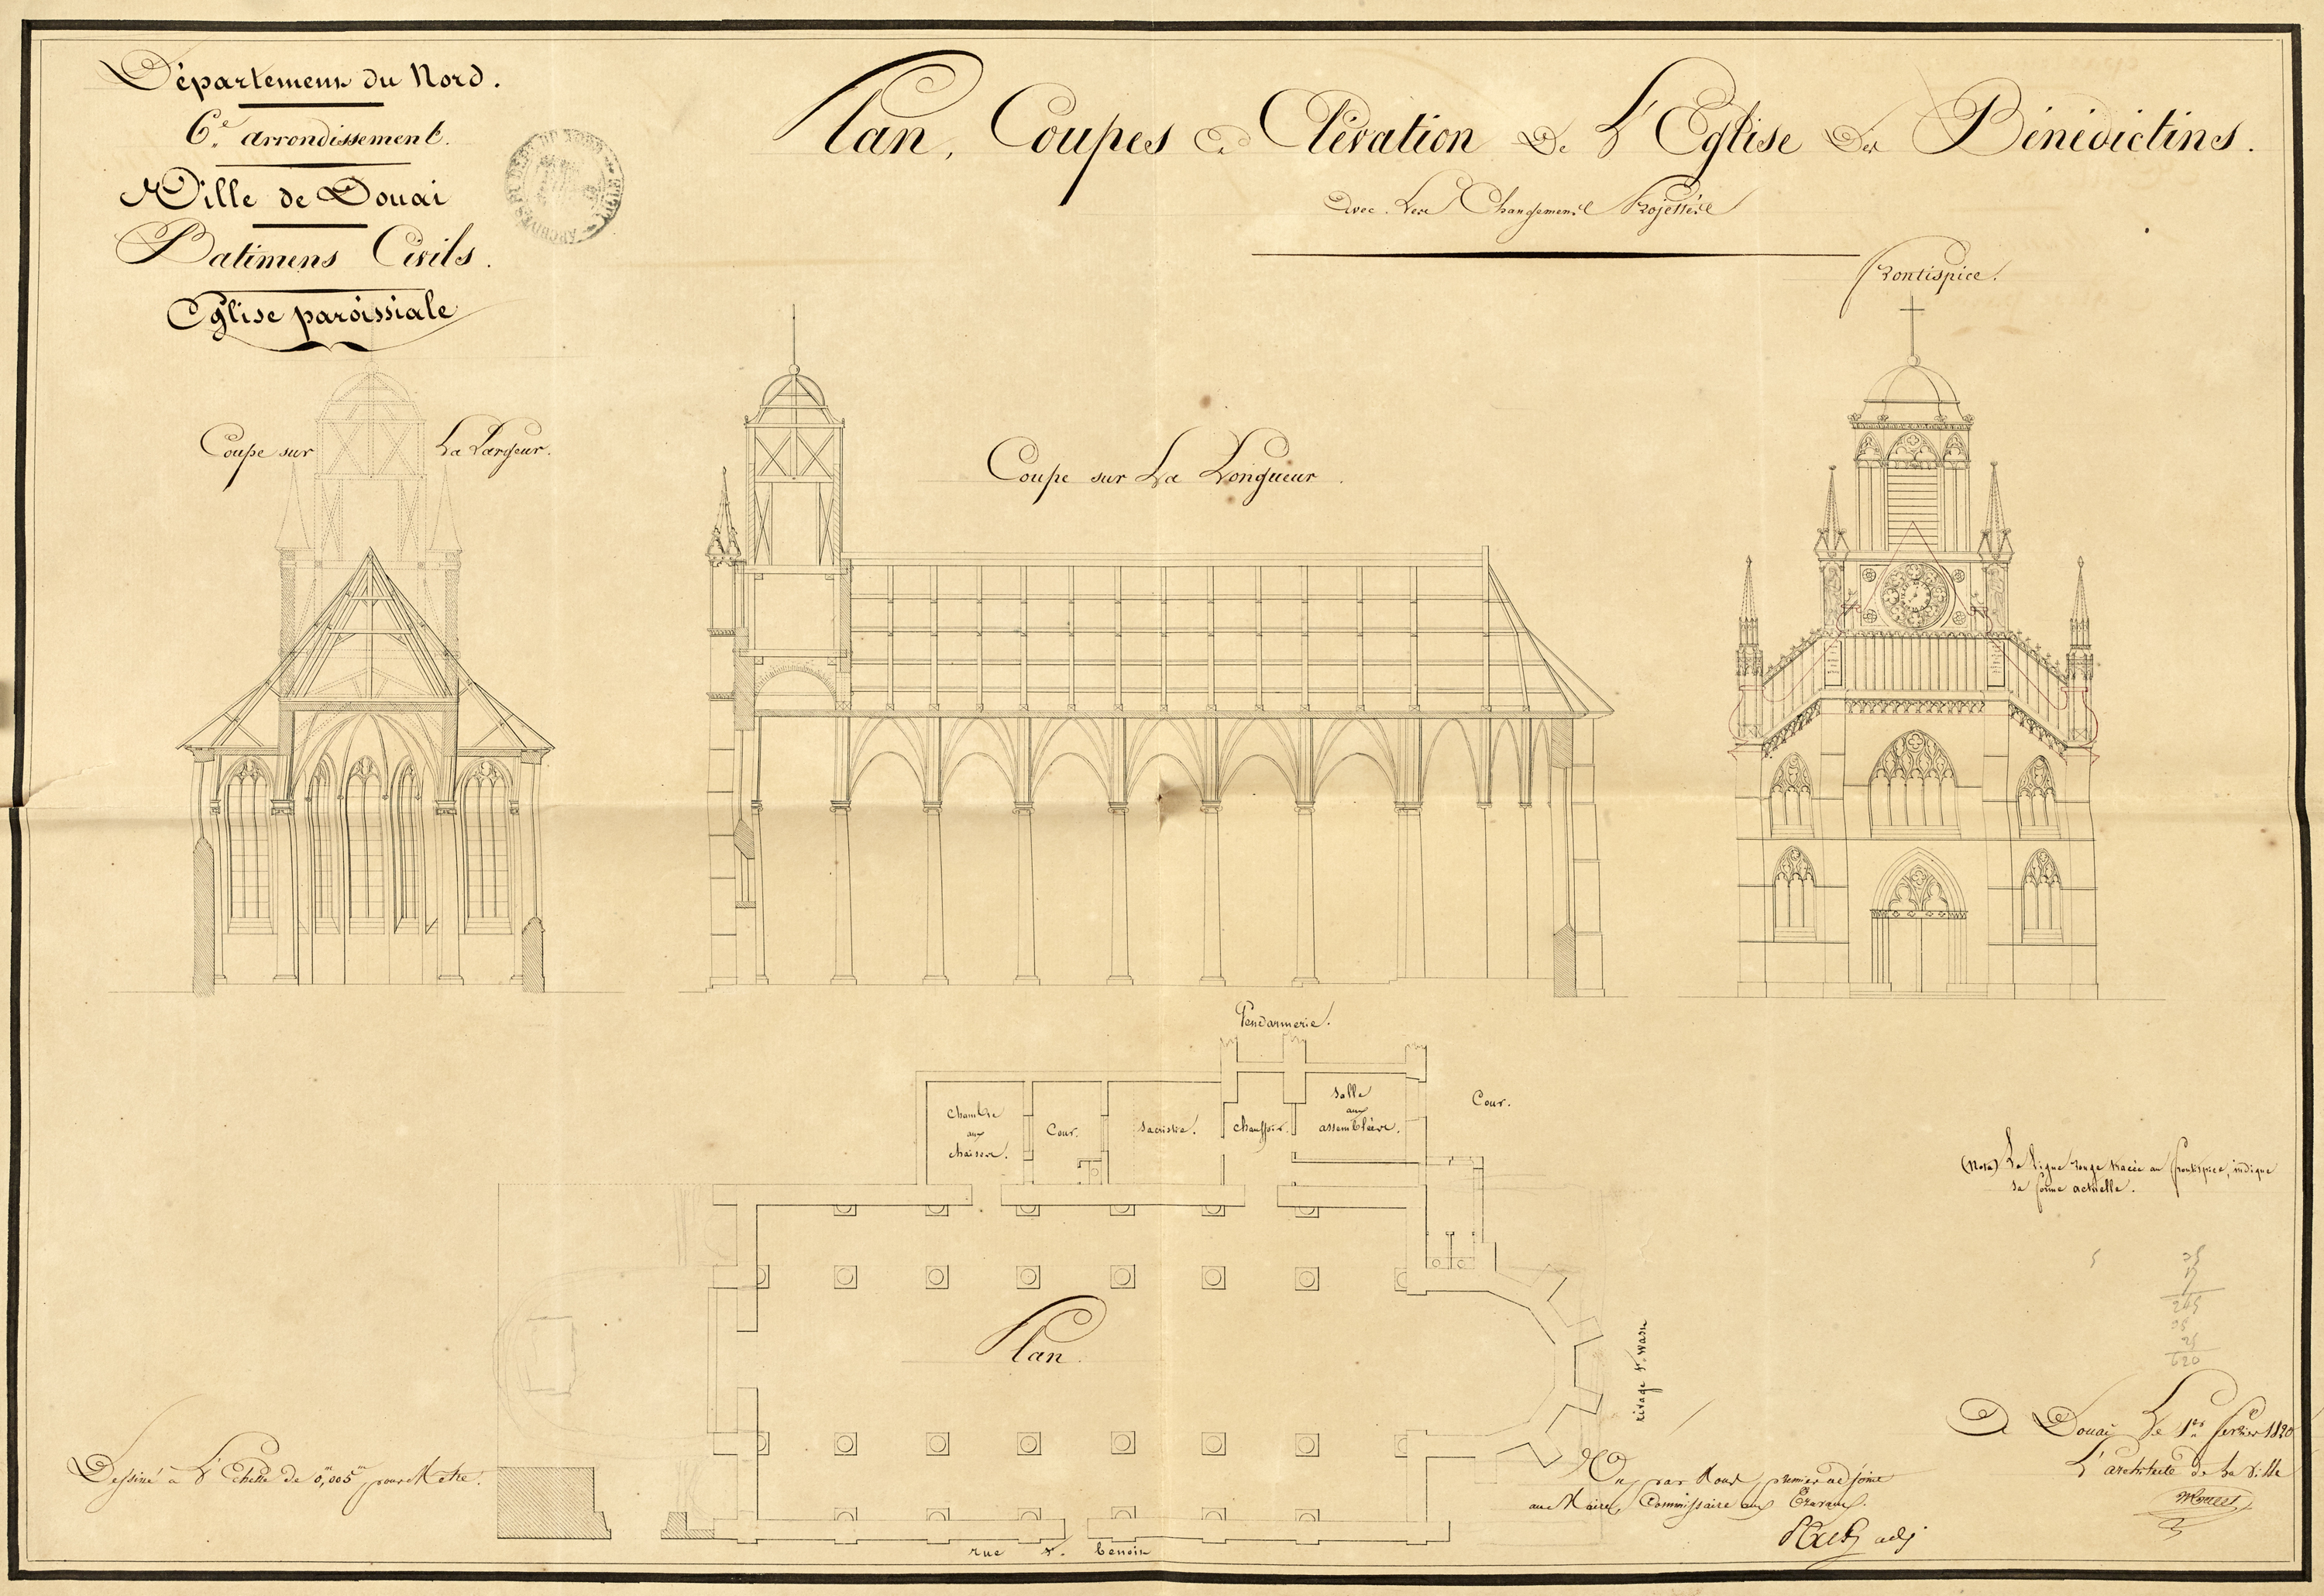 Département du Nord.
6.e arrondissement.
Ville de Douai
Batimens Civils.
Eglise paroissiale
Plan, Coupes et Elévation De L'Eglise Des Bénédictins.
Avec Les Changements Projettés
Frontispice.
Coupe sur La Largeur.
Coupe sur La Longueur.
Gendarmerie.
chambre
aux
chaises.
Cour.
sacristie.
chauffoir.
salle
aux
assemblées.
Cour.
(Nota) La Ligne rouge tracée au frontispice, indique
sa forme actuelle.
Plan.
rivage St. Waast
rue St. benoit
Dessiné à L'Echelle de 0,m005m pour Metre.
Vu par Nous, premier adjoint
au Maire, Commissaire aux Travaux.
adj
A Douai Le 1er fevrier
L'architecte de La Ville